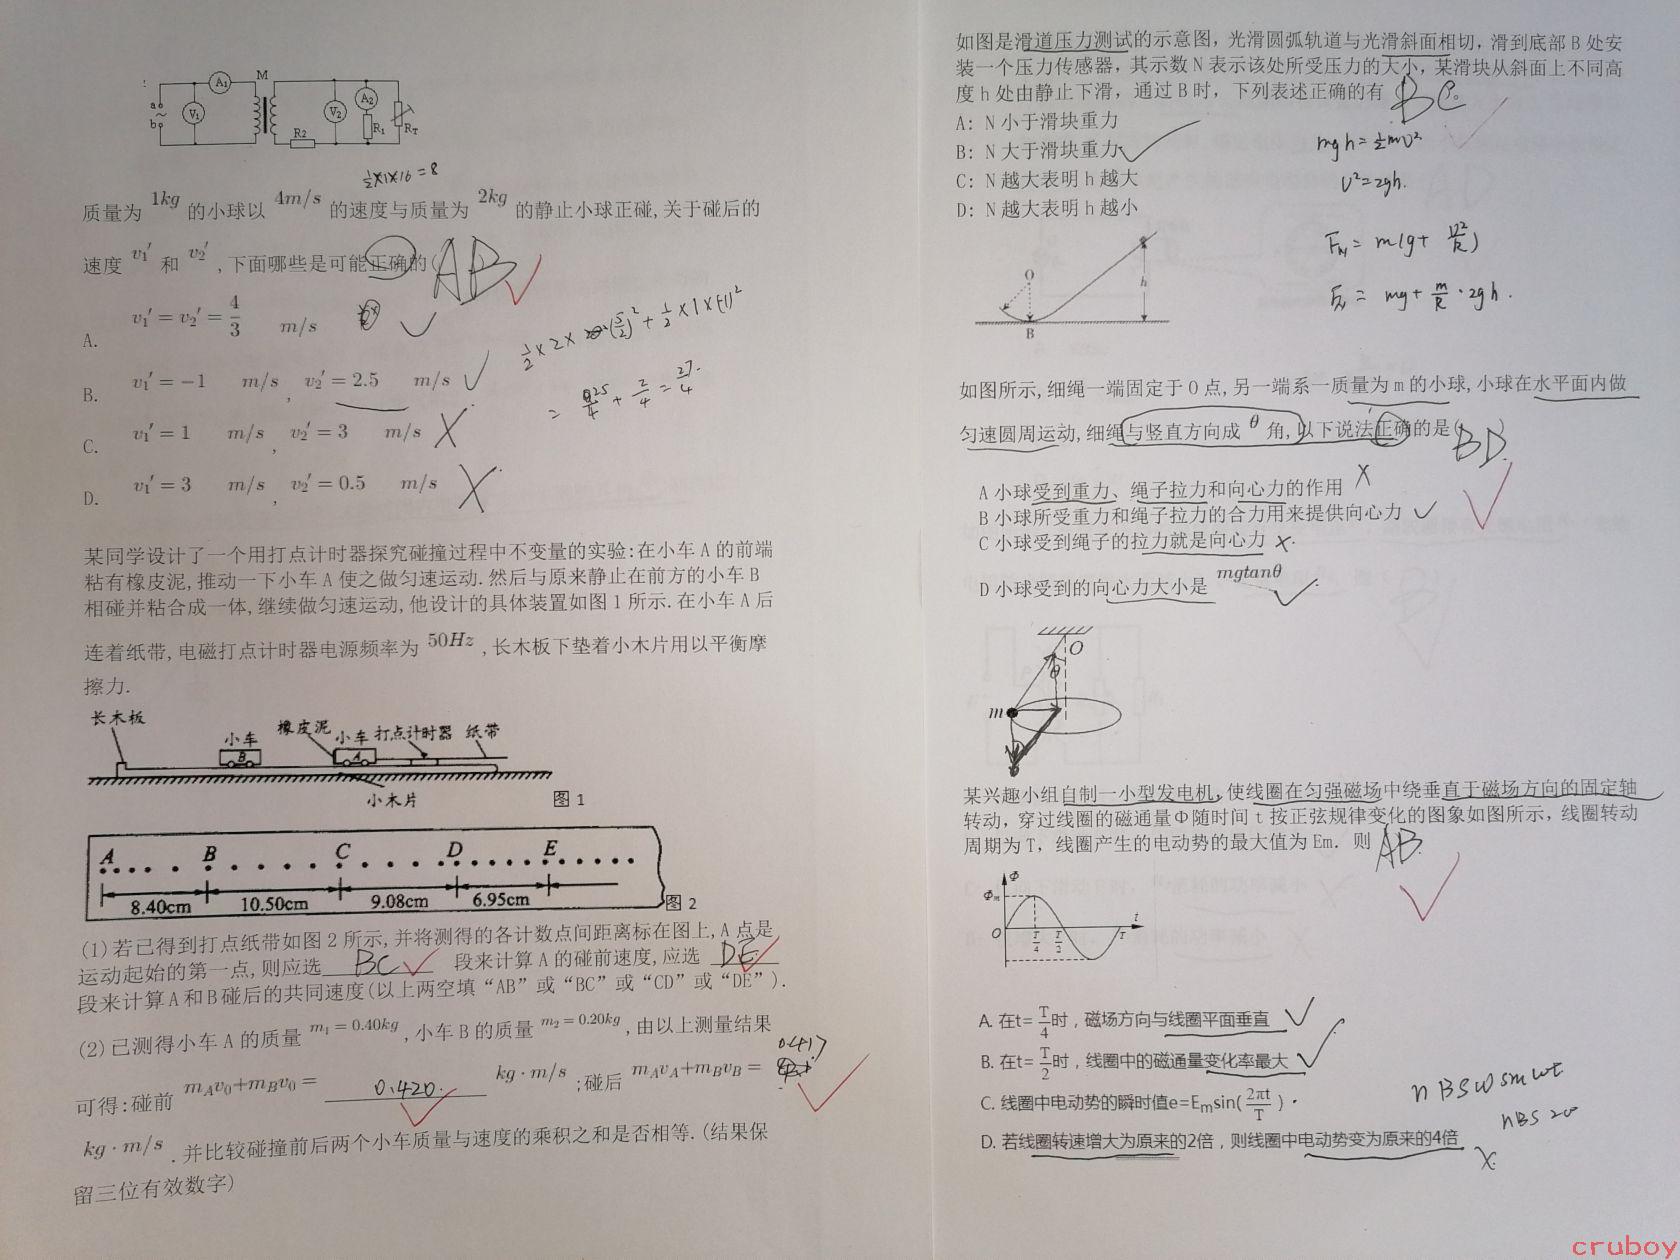 A1 M
a V1 V2 A2
b R2 R1 RT
½×1×16=8
质量为 1kg 的小球以 4m/s 的速度与质量为 2kg 的静止小球正碰,关于碰后的
速度 v₁′ 和 v₂′ ,下面哪些是可能正确的( AB )
A. v₁′ = v₂′ = 4/3 m/s
B. v₁′ = −1 m/s , v₂′ = 2.5 m/s
C. v₁′ = 1 m/s , v₂′ = 3 m/s
D. v₁′ = 3 m/s , v₂′ = 0.5 m/s
½×2×(5/2)²+½×1×(-1)²
= 25/4 + 2/4 = 27/4
某同学设计了一个用打点计时器探究碰撞过程中不变量的实验:在小车 A 的前端
粘有橡皮泥,推动一下小车 A 使之做匀速运动.然后与原来静止在前方的小车 B
相碰并粘合成一体,继续做匀速运动,他设计的具体装置如图 1 所示.在小车 A 后
连着纸带,电磁打点计时器电源频率为 50Hz ,长木板下垫着小木片用以平衡摩
擦力.
长木板 小车 橡皮泥 小车 打点计时器 纸带
B A
小木片 图 1
A B C D E
8.40cm 10.50cm 9.08cm 6.95cm 图 2
(1)若已得到打点纸带如图 2 所示,并将测得的各计数点间距离标在图上,A 点是
运动起始的第一点,则应选 BC 段来计算 A 的碰前速度,应选 DE
段来计算 A 和 B 碰后的共同速度(以上两空填“AB”或“BC”或“CD”或“DE”).
(2)已测得小车 A 的质量 m₁ = 0.40kg ,小车 B 的质量 m₂ = 0.20kg ,由以上测量结果
可得:碰前 mAv₀+mBv₀ = 0.420 kg·m/s ;碰后 mAvA+mBvB = 0.417
kg·m/s .并比较碰撞前后两个小车质量与速度的乘积之和是否相等.(结果保
留三位有效数字)
如图是滑道压力测试的示意图，光滑圆弧轨道与光滑斜面相切，滑到底部 B 处安
装一个压力传感器，其示数 N 表示该处所受压力的大小，某滑块从斜面上不同高
度 h 处由静止下滑，通过 B 时，下列表述正确的有（ BC 。
A: N 小于滑块重力
B: N 大于滑块重力
C: N 越大表明 h 越大
D: N 越大表明 h 越小
mgh=½mv²
v²=2gh.
FN = m(g+ v²/R)
FN = mg+ m/R·2gh.
O h
B
如图所示,细绳一端固定于 O 点,另一端系一质量为 m 的小球,小球在水平面内做
匀速圆周运动,细绳与竖直方向成 θ 角,以下说法正确的是( BD )
A 小球受到重力、绳子拉力和向心力的作用
B 小球所受重力和绳子拉力的合力用来提供向心力
C 小球受到绳子的拉力就是向心力
D 小球受到的向心力大小是 mgtanθ
O
θ
m
某兴趣小组自制一小型发电机,使线圈在匀强磁场中绕垂直于磁场方向的固定轴
转动，穿过线圈的磁通量Φ随时间 t 按正弦规律变化的图象如图所示，线圈转动
周期为 T，线圈产生的电动势的最大值为 Em．则 AB
Φ
Φm t
O T/4 T/2 T
A. 在t= T/4时，磁场方向与线圈平面垂直
B. 在t= T/2时，线圈中的磁通量变化率最大
C. 线圈中电动势的瞬时值e=Emsin(2πt/T)
D. 若线圈转速增大为原来的2倍，则线圈中电动势变为原来的4倍
nBSωsinωt
nBS2ω
cruboy